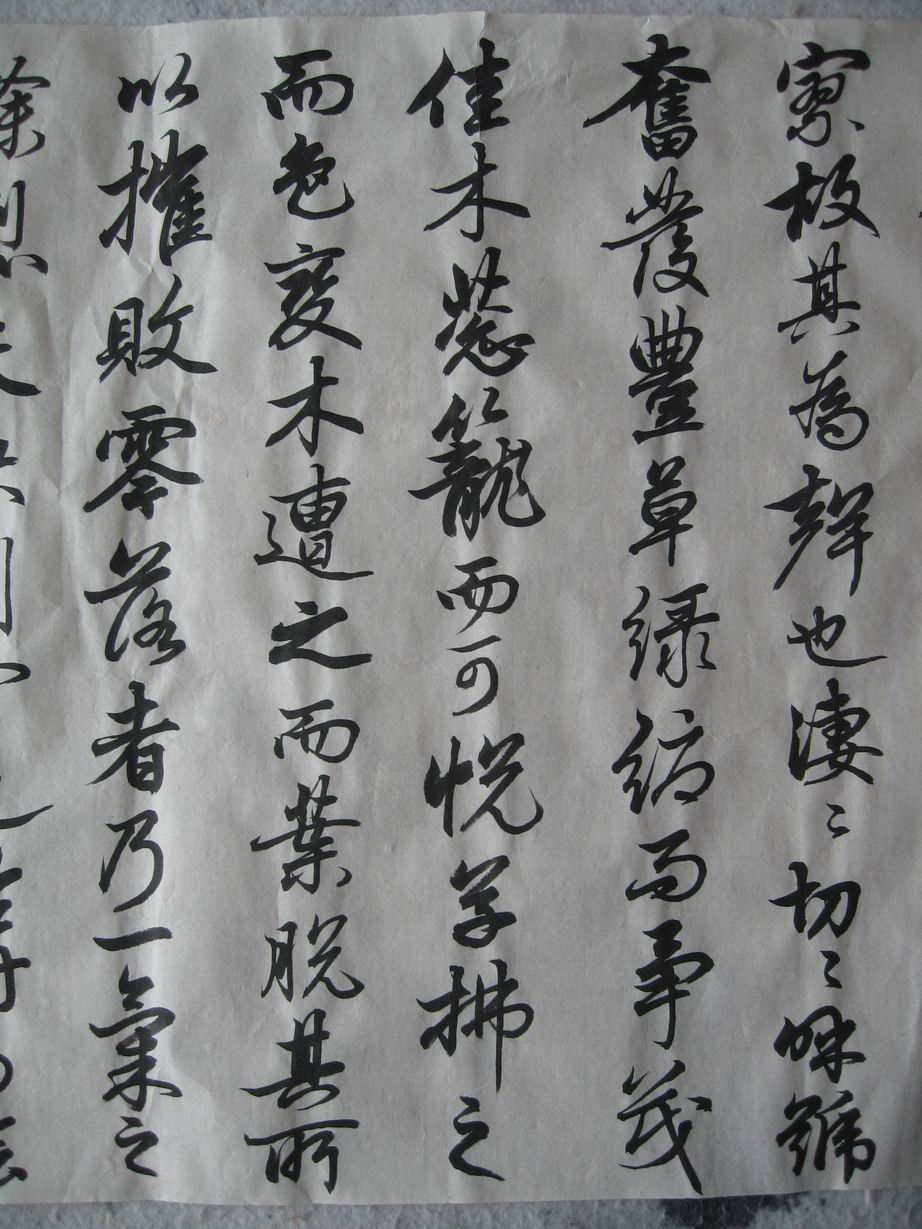 寥故其為聲也淒〻切〻呼號
奮發豐草綠縟而爭茂
佳木葱籠而可悅草拂之
而色變木遭之而葉脫其所
以摧敗零落者乃一氣之
餘刑